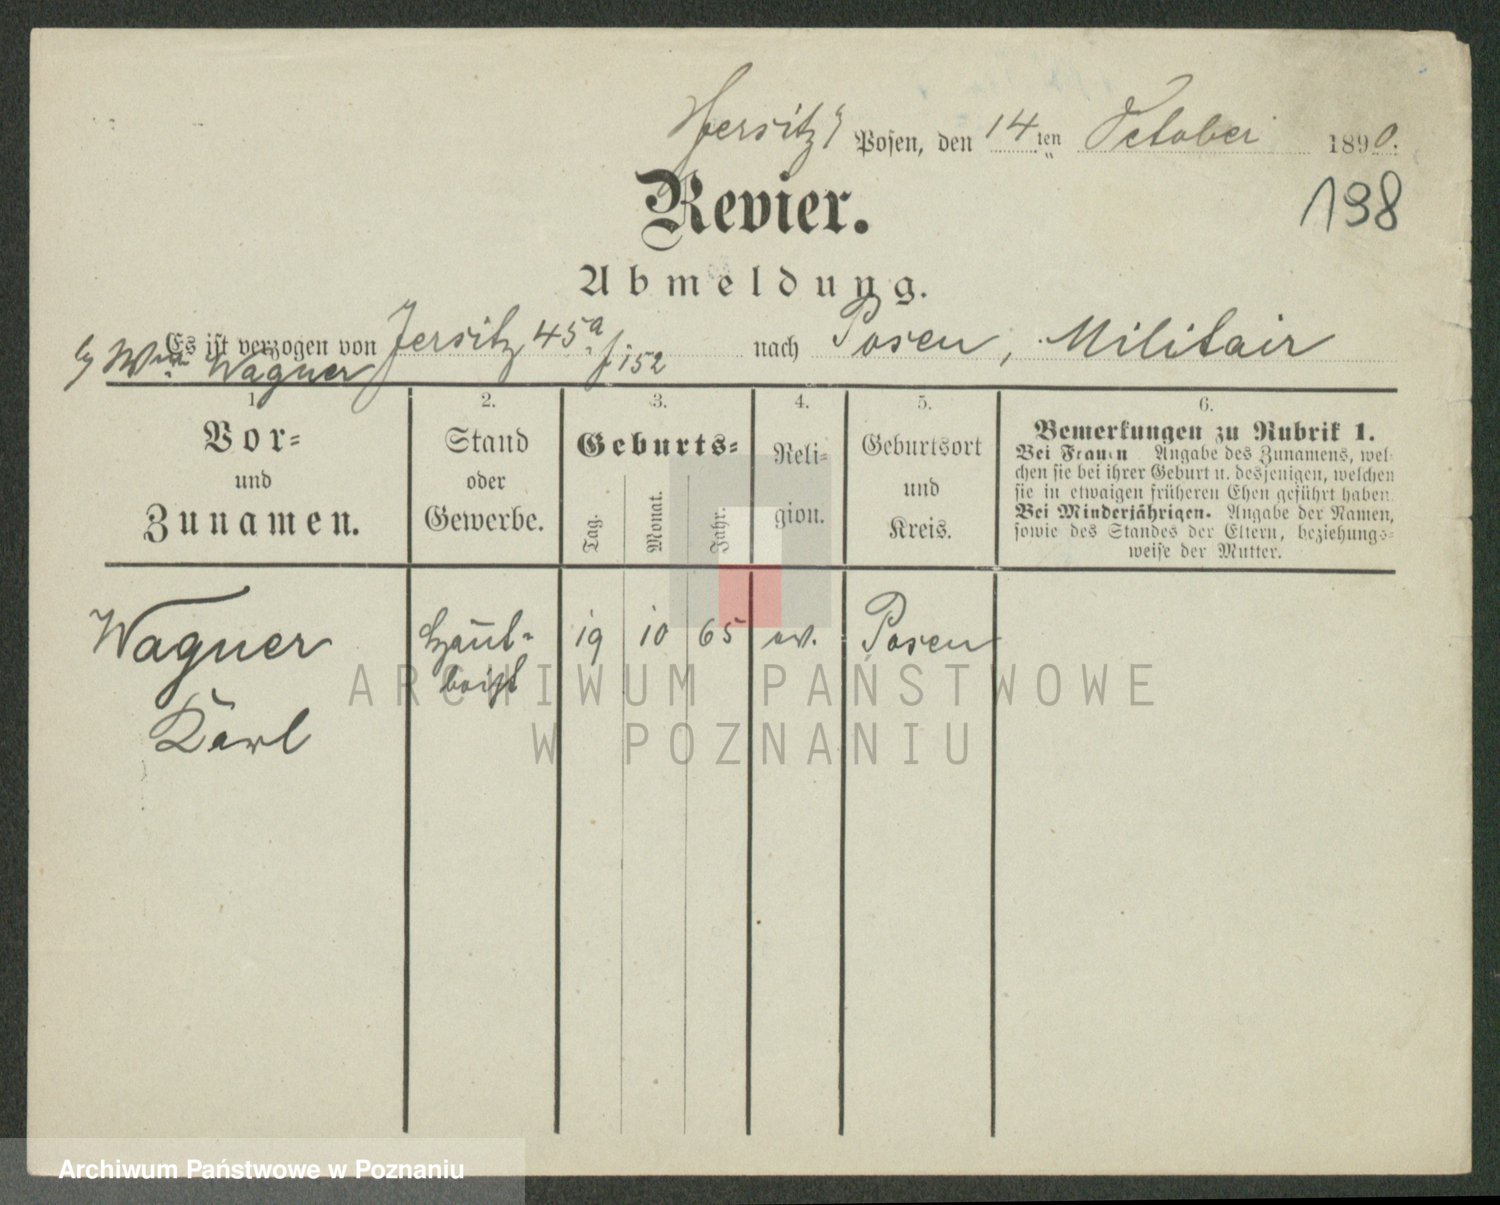 Jersitz Posen, den 14ten October 1890.
198
Revier.
Abmeldung.
Es ist verzogen von Jersitz 45a f 152 nach Posen, Militair
b/ Wwe Wagner
1. 2. 3. 4. 5. 6.
Vor- und Zunamen.
Stand oder Gewerbe.
Geburts-
Tag. Monat. Jahr.
Religion.
Geburtsort und Kreis.
Bemerkungen zu Rubrik 1.
Bei Frauen Angabe des Zunamens, wel-
chen sie bei ihrer Geburt u. desjenigen, welchen
sie in etwaigen früheren Ehen geführt haben.
Bei Minderjährigen. Angabe der Namen,
sowie des Standes der Eltern, beziehungs-
weise der Mutter.
Wagner 19 10 65 ev. Posen
Karl
ARCHIWUM PAŃSTWOWE
W POZNANIU
Archiwum Państwowe w Poznaniu